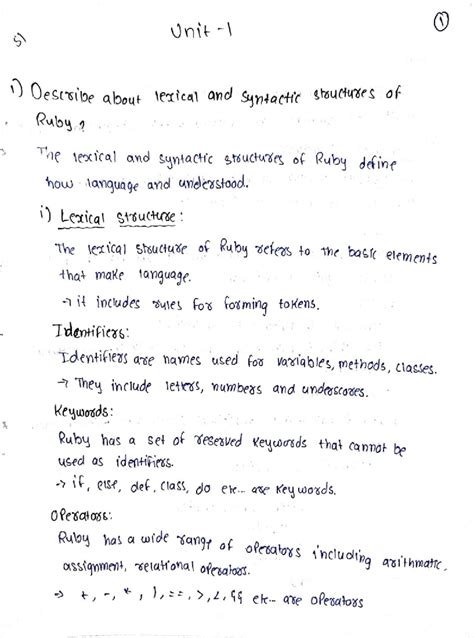 Unit-1
①
5)
1) Describe about lexical and syntactic structures of
Ruby?
The lexical and syntactic structures of Ruby define
how language and understood.
i) Lexical structure:
The lexical structure of Ruby refers to the basic elements
that make language.
→ it includes rules for forming tokens.
Identifiers:
Identifiers are names used for variables, methods, classes.
→ They include letters, numbers and underscores.
Keywords:
Ruby has a set of reserved keywords that cannot be
used as identifiers.
→ if, else, def, class, do etc... are keywords.
Operators:
Ruby has a wide range of operators including arithmatic,
assignment, relational operators.
→ +, -, *, ), ==, >, <, && etc... are operators